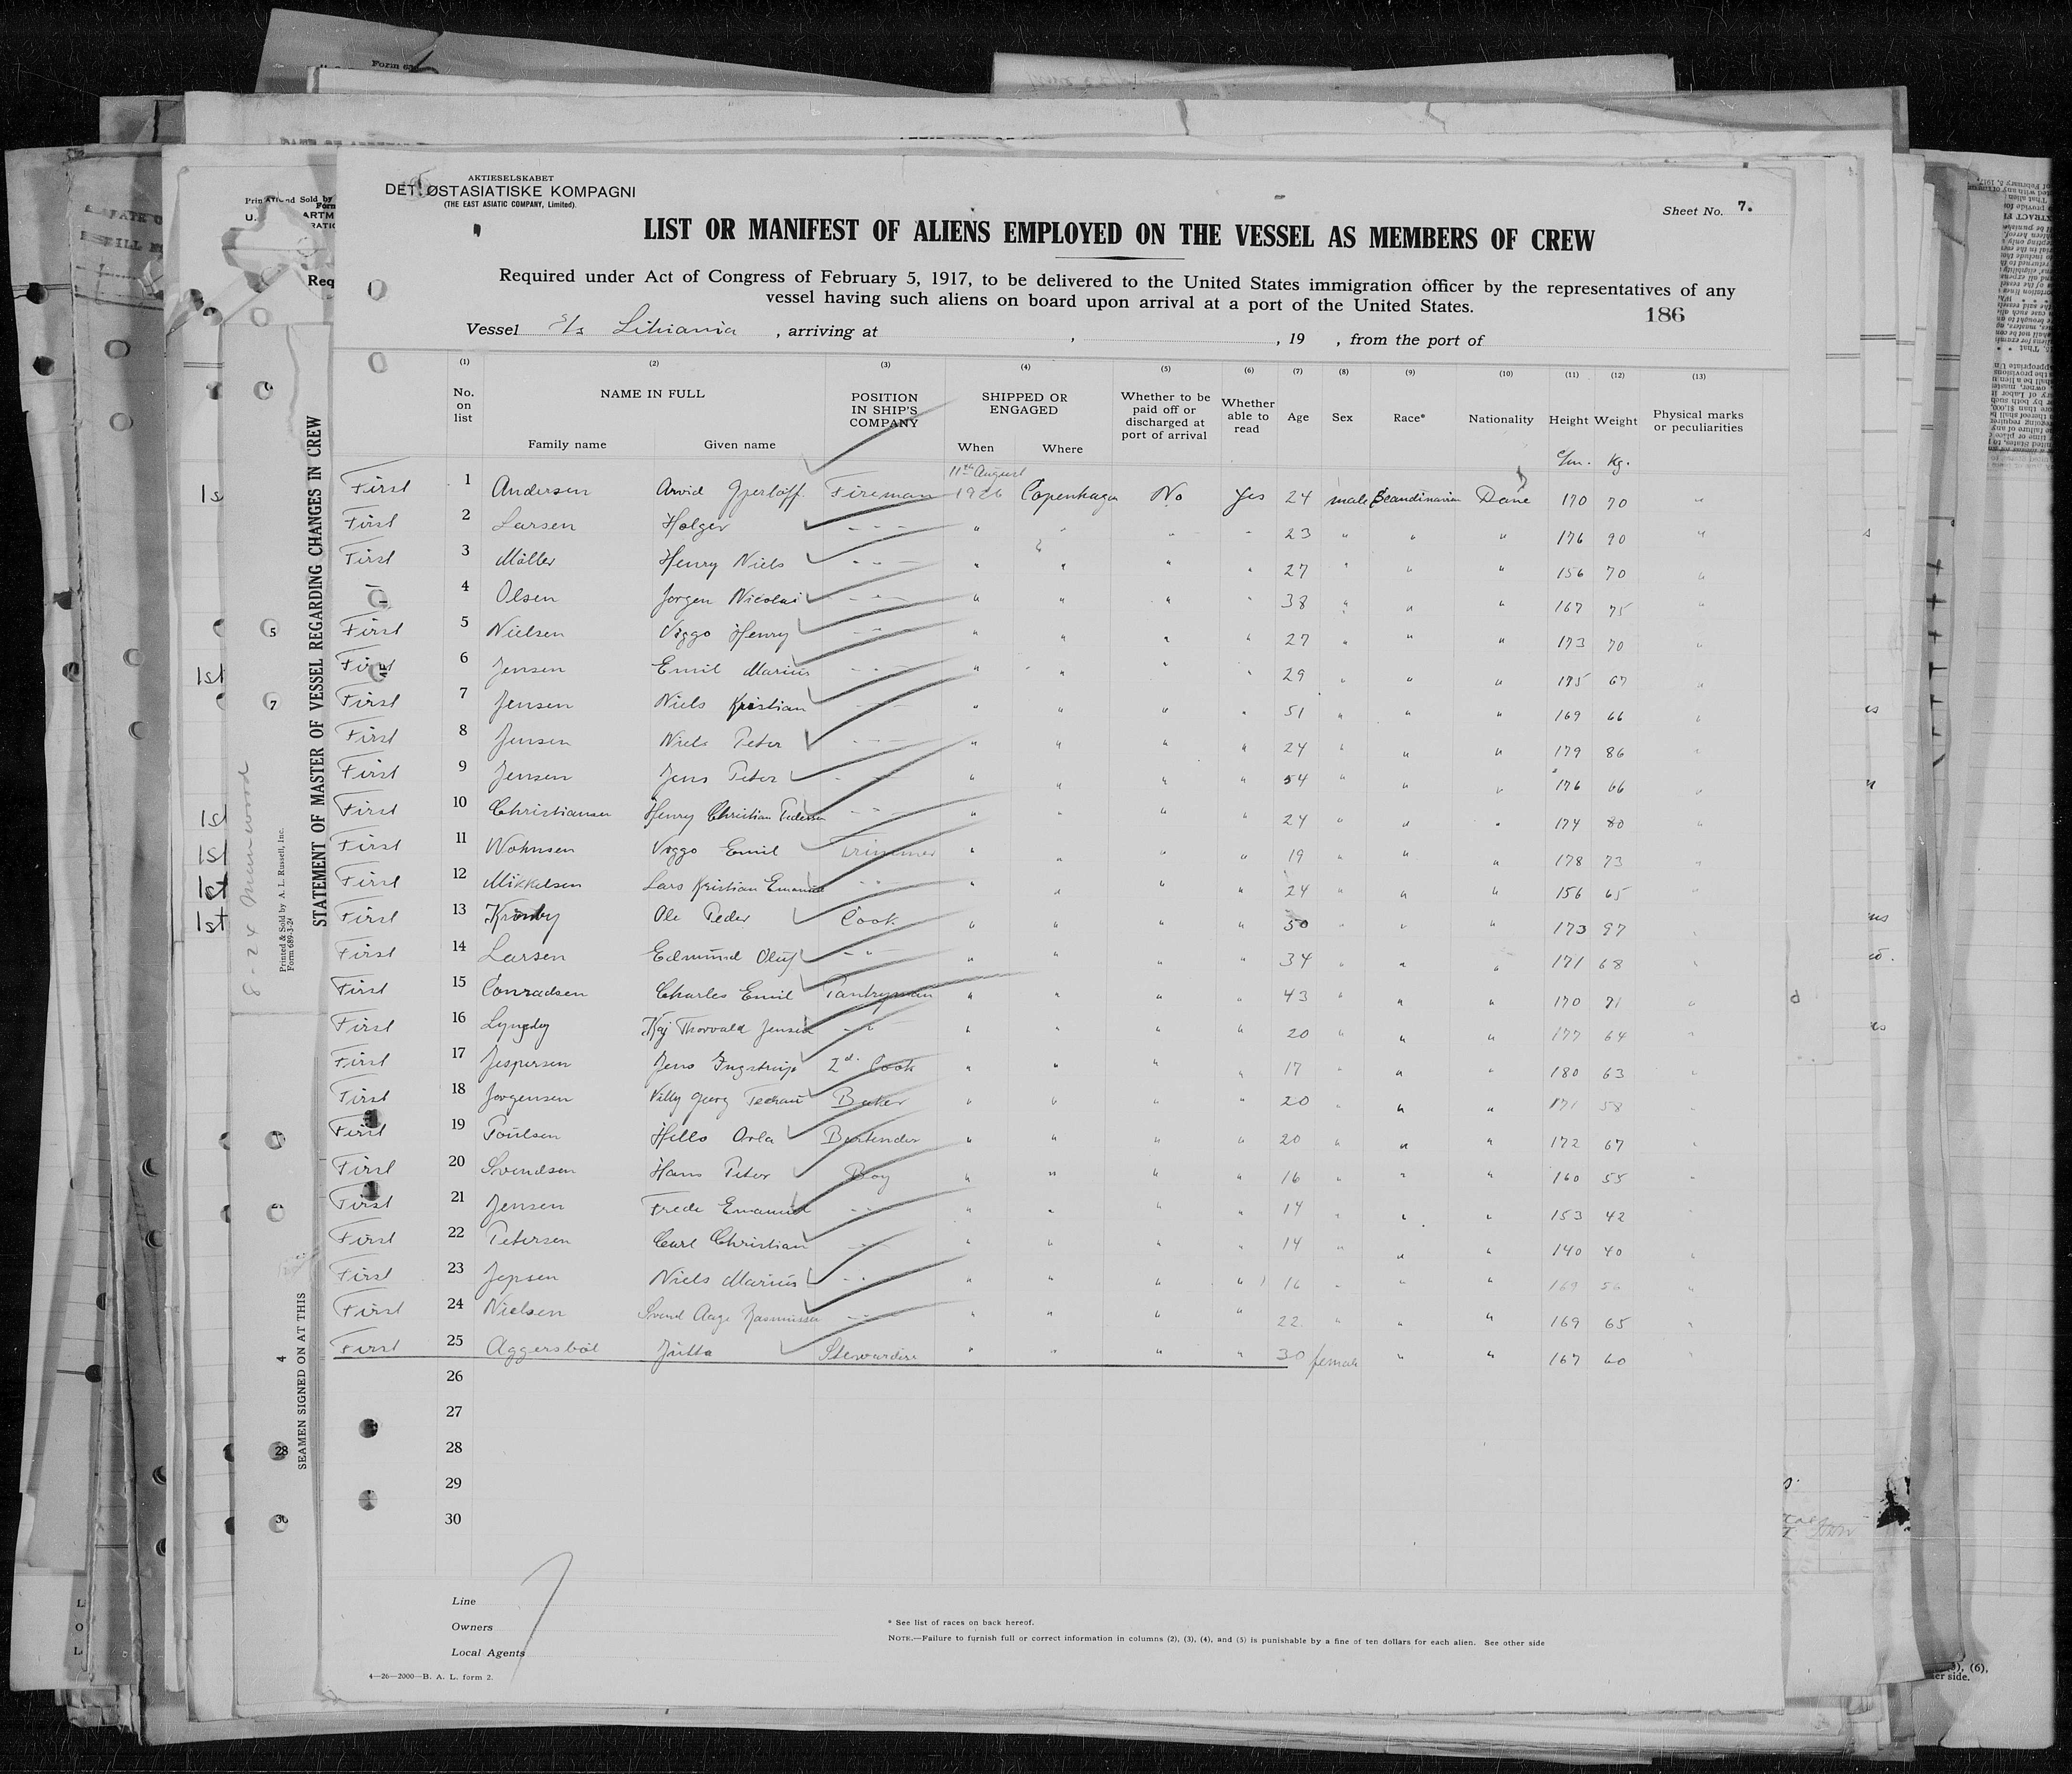 AKTIESELSKABET
DET ØSTASIATISKE KOMPAGNI
(THE EAST ASIATIC COMPANY, Limited).
Sheet No. 7.
LIST OR MANIFEST OF ALIENS EMPLOYED ON THE VESSEL AS MEMBERS OF CREW
Required under Act of Congress of February 5, 1917, to be delivered to the United States immigration officer by the representatives of any
vessel having such aliens on board upon arrival at a port of the United States.
186
Vessel S/s Lituania , arriving at , , 19 , from the port of
(1) (2) (3) (4) (5) (6) (7) (8) (9) (10) (11) (12) (13)
No. on list NAME IN FULL Family name Given name POSITION IN SHIP'S COMPANY SHIPPED OR ENGAGED When Where Whether to be paid off or discharged at port of arrival Whether able to read Age Sex Race* Nationality Height Weight Physical marks or peculiarities
c/m. Kg.
11th August
First 1 Andersen Arvid Gjerløff Fireman 1926 Copenhagen No Yes 24 male Scandinavian Dane 170 70 "
First 2 Larsen Holger - " - " " " " 23 " " " 176 90 "
First 3 Möller Henry Niels - " - " " " " 27 " " " 156 70 "
4 Olsen Jorgen Nicolai - " - " " " " 38 " " " 167 75 "
First 5 Nielsen Viggo Henry - " - " " " " 27 " " " 173 70 "
First 6 Jensen Emil Marius - " - " " " " 29 " " " 175 67 "
First 7 Jensen Niels Kristian - " - " " " " 51 " " " 169 66 "
First 8 Jensen Niels Peter - " - " " " " 24 " " " 179 86 "
First 9 Jensen Jens Peter - " - " " " " 54 " " " 176 66 "
First 10 Christiansen Henry Christian Pedersen - " - " " " " 24 " " " 174 80 "
First 11 Wohnsen Viggo Emil Trimmer " " " " 19 " " " 178 73 "
First 12 Mikkelsen Lars Kristian Emanuel - " - " " " " 24 " " " 156 65 "
First 13 Ole Peder Cook " " " " 50 " " " 173 97 "
First 14 Larsen Edmund Oluf - " - " " " " 34 " " " 171 68 "
First 15 Conradsen Charles Emil Pantryman " " " " 43 " " " 170 71 "
First 16 Lyngby Kaj Thorvald Jensen - " - " " " " 20 " " " 177 64 "
First 17 Jespersen Jens Ingstrup 2d. Cook " " " " 17 " " " 180 63 "
First 18 Jorgensen Villy Georg Baker " " " " 20 " " " 171 58 "
First 19 Poulsen Hello Orla Bartender " " " " 20 " " " 172 67 "
First 20 Svendsen Hans Peter Boy " " " " 16 " " " 160 55 "
First 21 Jensen Frede Emanuel - " - " " " " 14 " " " 153 42 "
First 22 Petersen Carl Christian - " - " " " " 14 " " " 140 40 "
First 23 Jepsen Niels Marius - " - " " " " 16 " " " 169 56 "
First 24 Nielsen Svend Aage Rasmussen - " - " " " " 22 " " " 169 65 "
First 25 Aggersböl Jutta Stewardess " " " " 30 female " " 167 60 "
26
27
28
29
30
Line
Owners
Local Agents
* See list of races on back hereof.
NOTE.—Failure to furnish full or correct information in columns (2), (3), (4), and (5) is punishable by a fine of ten dollars for each alien. See other side
4—26—2000—B. A. L. form 2.
STATEMENT OF MASTER OF VESSEL REGARDING CHANGES IN CREW
Printed & Sold by A. L. Russell, Inc.
Form 689-3-24
SEAMEN SIGNED ON AT THIS
1st
1st
1st
1st
1st
1st